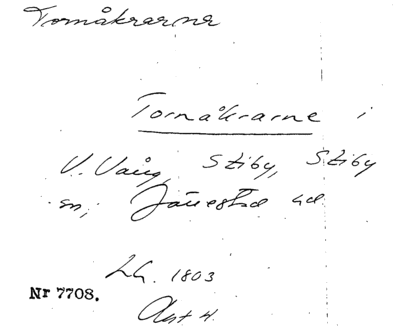 Tornåkrarne
Tornåkrarne i
V. Vång, Stiby, Stiby
sn; Järrestad hd
LG. 1803
Nr 7708.
Akt 4.